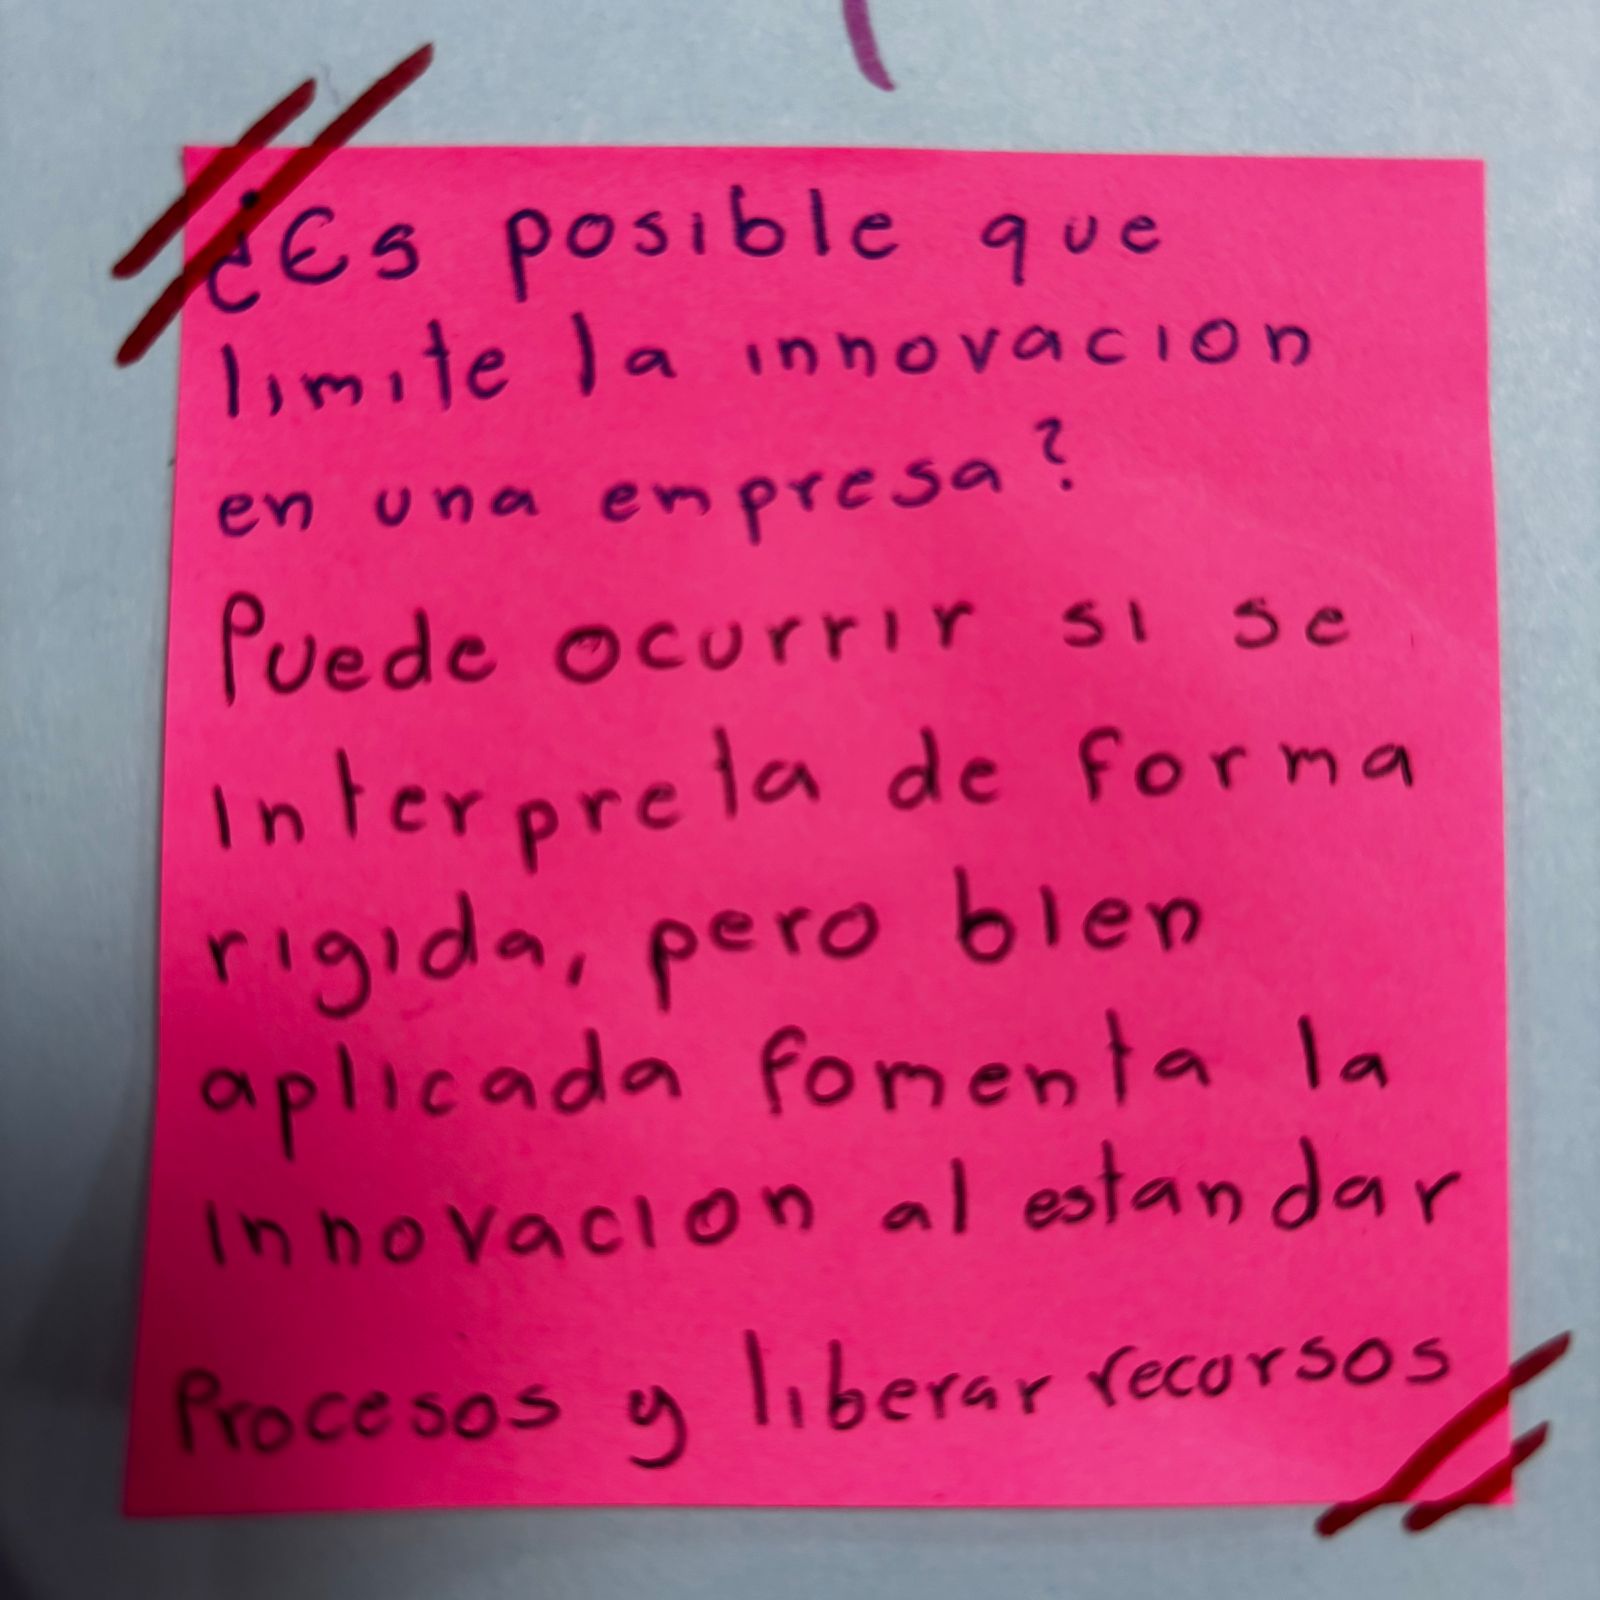 ¿Es posible que
limite la innovacion
en una empresa?
Puede ocurrir si se
interpreta de forma
rigida, pero bien
aplicada fomenta la
innovacion al estandar
Procesos y liberar recursos